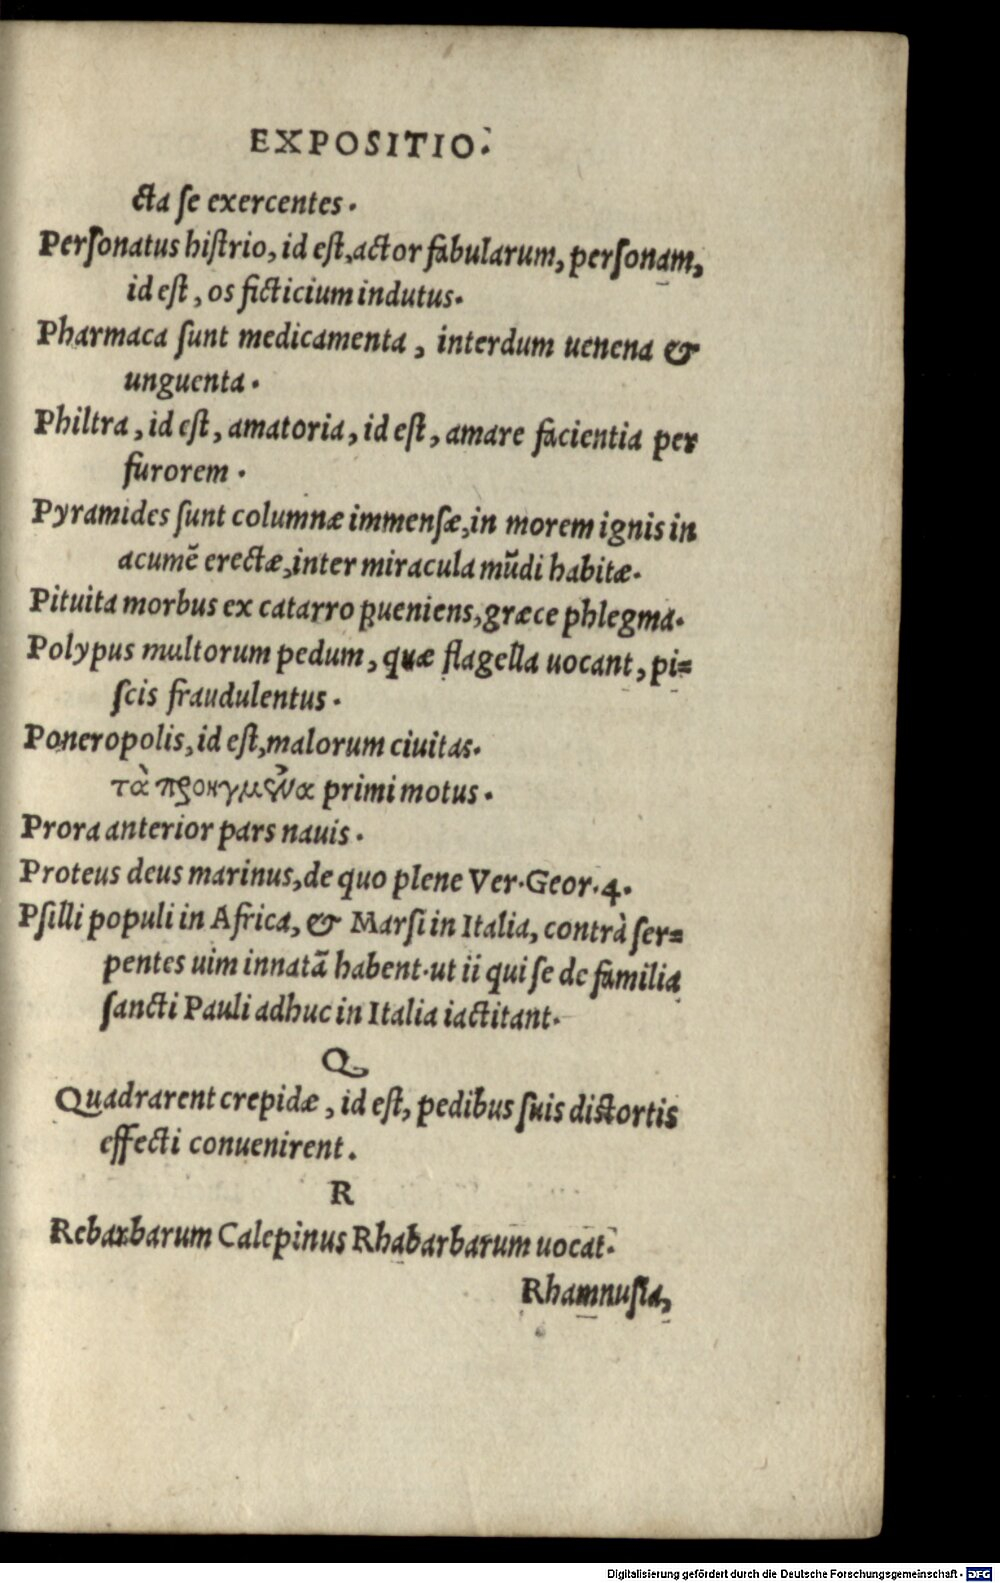 EXPOSITIO.
cta ſe exercentes.
Perſonatus hiſtrio, id eſt, actor fabularum, perſonam,
id eſt, os ficticium indutus.
Pharmaca ſunt medicamenta, interdum uenena &
unguenta.
Philtra, id eſt, amatoria, id eſt, amare facientia per
furorem.
Pyramides ſunt columnæ immenſæ, in morem ignis in
acumẽ erectæ, inter miracula mũdi habitæ.
Pituita morbus ex catarro ꝑueniens, græce phlegma.
Polypus multorum pedum, quæ flagella uocant, pi=
ſcis fraudulentus.
Poneropolis, id eſt, malorum ciuitas.
τὰ προηγμένα primi motus.
Prora anterior pars nauis.
Proteus deus marinus, de quo plene Ver. Geor. 4.
Pſilli populi in Africa, & Marſi in Italia, contrà ſer=
pentes uim innatã habent. ut ii qui ſe de familia
ſancti Pauli adhuc in Italia iactitant.
Q
Quadrarent crepidæ, id eſt, pedibus ſuis diſtortis
effecti conuenirent.
R
Rebarbarum Calepinus Rhabarbarum uocat.
Rhamnuſia,
Digitalisierung gefördert durch die Deutsche Forschungsgemeinschaft - DFG